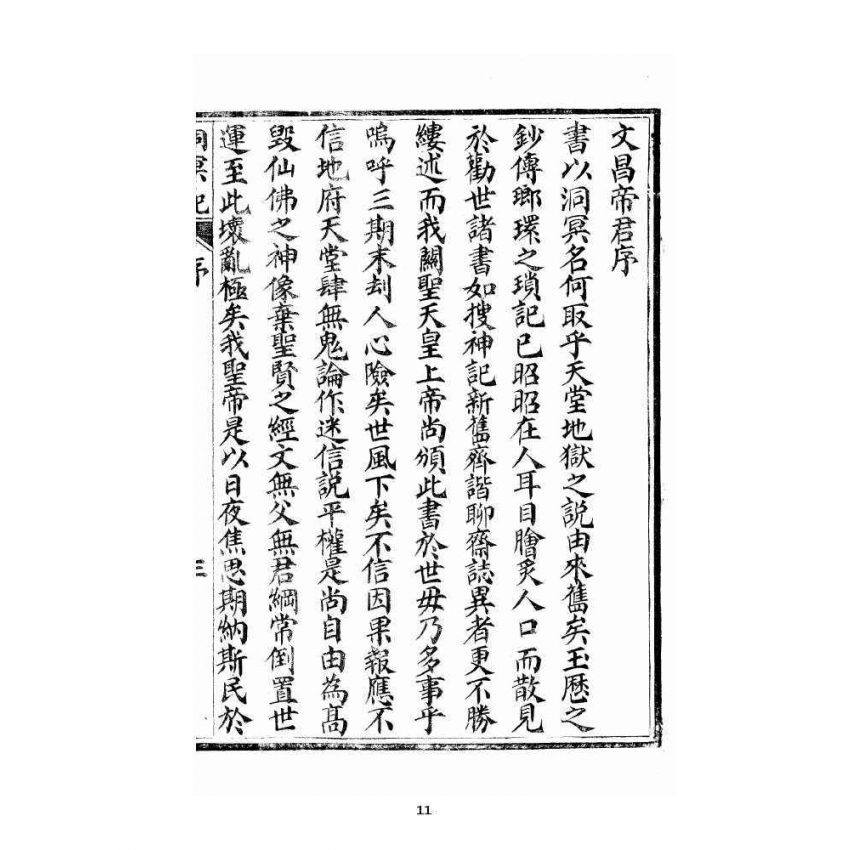 文昌帝君序
書以洞冥名何取乎天堂地獄之説由來舊矣玉歷之
鈔傳瑯環之瑣記已昭昭在人耳目膾炙人口而散見
於勸世諸書如搜神記新舊齊諧聊齋誌異者更不勝
縷述而我關聖天皇上帝尚頒此書於世毋乃多事乎
嗚呼三期末刦人心險矣世風下矣不信因果報應不
信地府天堂肆無鬼論作迷信説平權是尚自由為髙
毀仙佛之神像棄聖賢之經文無父無君綱常倒置世
運至此壞亂極矣我聖帝是以日夜焦思期納斯民於
洞冥記
序
三
11